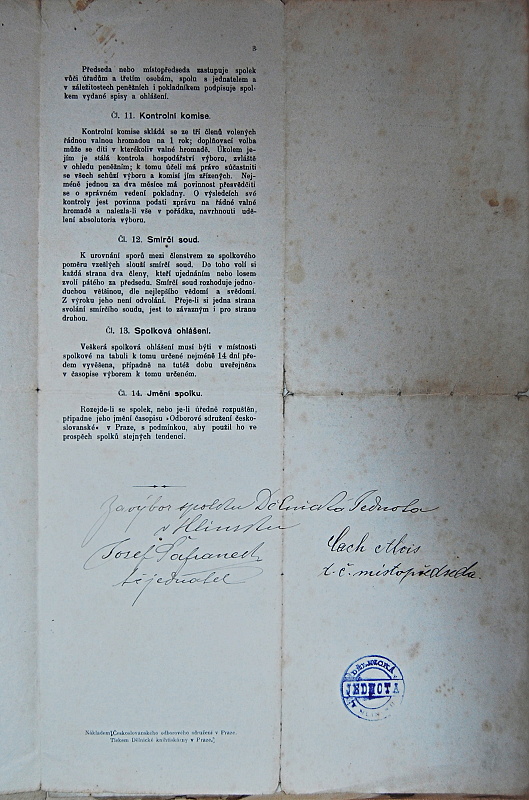 3
Předseda nebo místopředseda zastupuje spolek
vůči úřadům a třetím osobám, spolu s jednatelem a
v záležitostech peněžních i pokladníkem podpisuje spol-
kem vydané spisy a ohlášení.
Čl. 11. Kontrolní komise.
Kontrolní komise skládá se ze tří členů volených
řádnou valnou hromadou na 1 rok; doplňovací volba
může se díti v kterékoliv valné hromadě. Úkolem je-
jím je stálá kontrola hospodářství výboru, zvláště
v ohledu peněžním; k tomu účeli má právo súčastniti
se všech schůzí výboru a komisí jím zřízených. Nej-
méně jednou za dva měsíce má povinnost přesvědčiti
se o správném vedení pokladny. O výsledcích své
kontroly jest povinna podati zprávu na řádné valné
hromadě a nalezla-li vše v pořádku, navrhnouti udě-
lení absolutoria výboru.
Čl. 12. Smírčí soud.
K urovnání sporů mezi členstvem ze spolkového
poměru vzešlých slouží smírčí soud. Do toho volí si
každá strana dva členy, kteří ujednáním nebo losem
zvolí pátého za předsedu. Smírčí soud rozhoduje jedno-
duchou většinou, dle nejlepšího vědomí a svědomí.
Z výroku jeho není odvolání. Přeje-li si jedna strana
svolání smírčího soudu, jest to závazným i pro stranu
druhou.
Čl. 13. Spolková ohlášení.
Veškerá spolková ohlášení musí býti v místnosti
spolkové na tabuli k tomu určené nejméně 14 dní pře-
dem vyvěšena, případně na tutéž dobu uveřejněna
v časopise výborem k tomu určeném.
Čl. 14. Jmění spolku.
Rozejde-li se spolek, nebo je-li úředně rozpuštěn,
připadne jeho jmění časopisu »Odborové sdružení česko-
slovanské« v Praze, s podmínkou, aby použil ho ve
prospěch spolků stejných tendencí.
Za výbor spolku Dělnická Jednota
v Hlinsku
Josef Šafránek
t č jednatel
Cach Alois
t. č. místopředseda.
DĚLNICKÁ
JEDNOTA
Nákladem Českoslovanského odborového sdružení v Praze.
Tiskem Dělnické knihtiskárny v Praze.